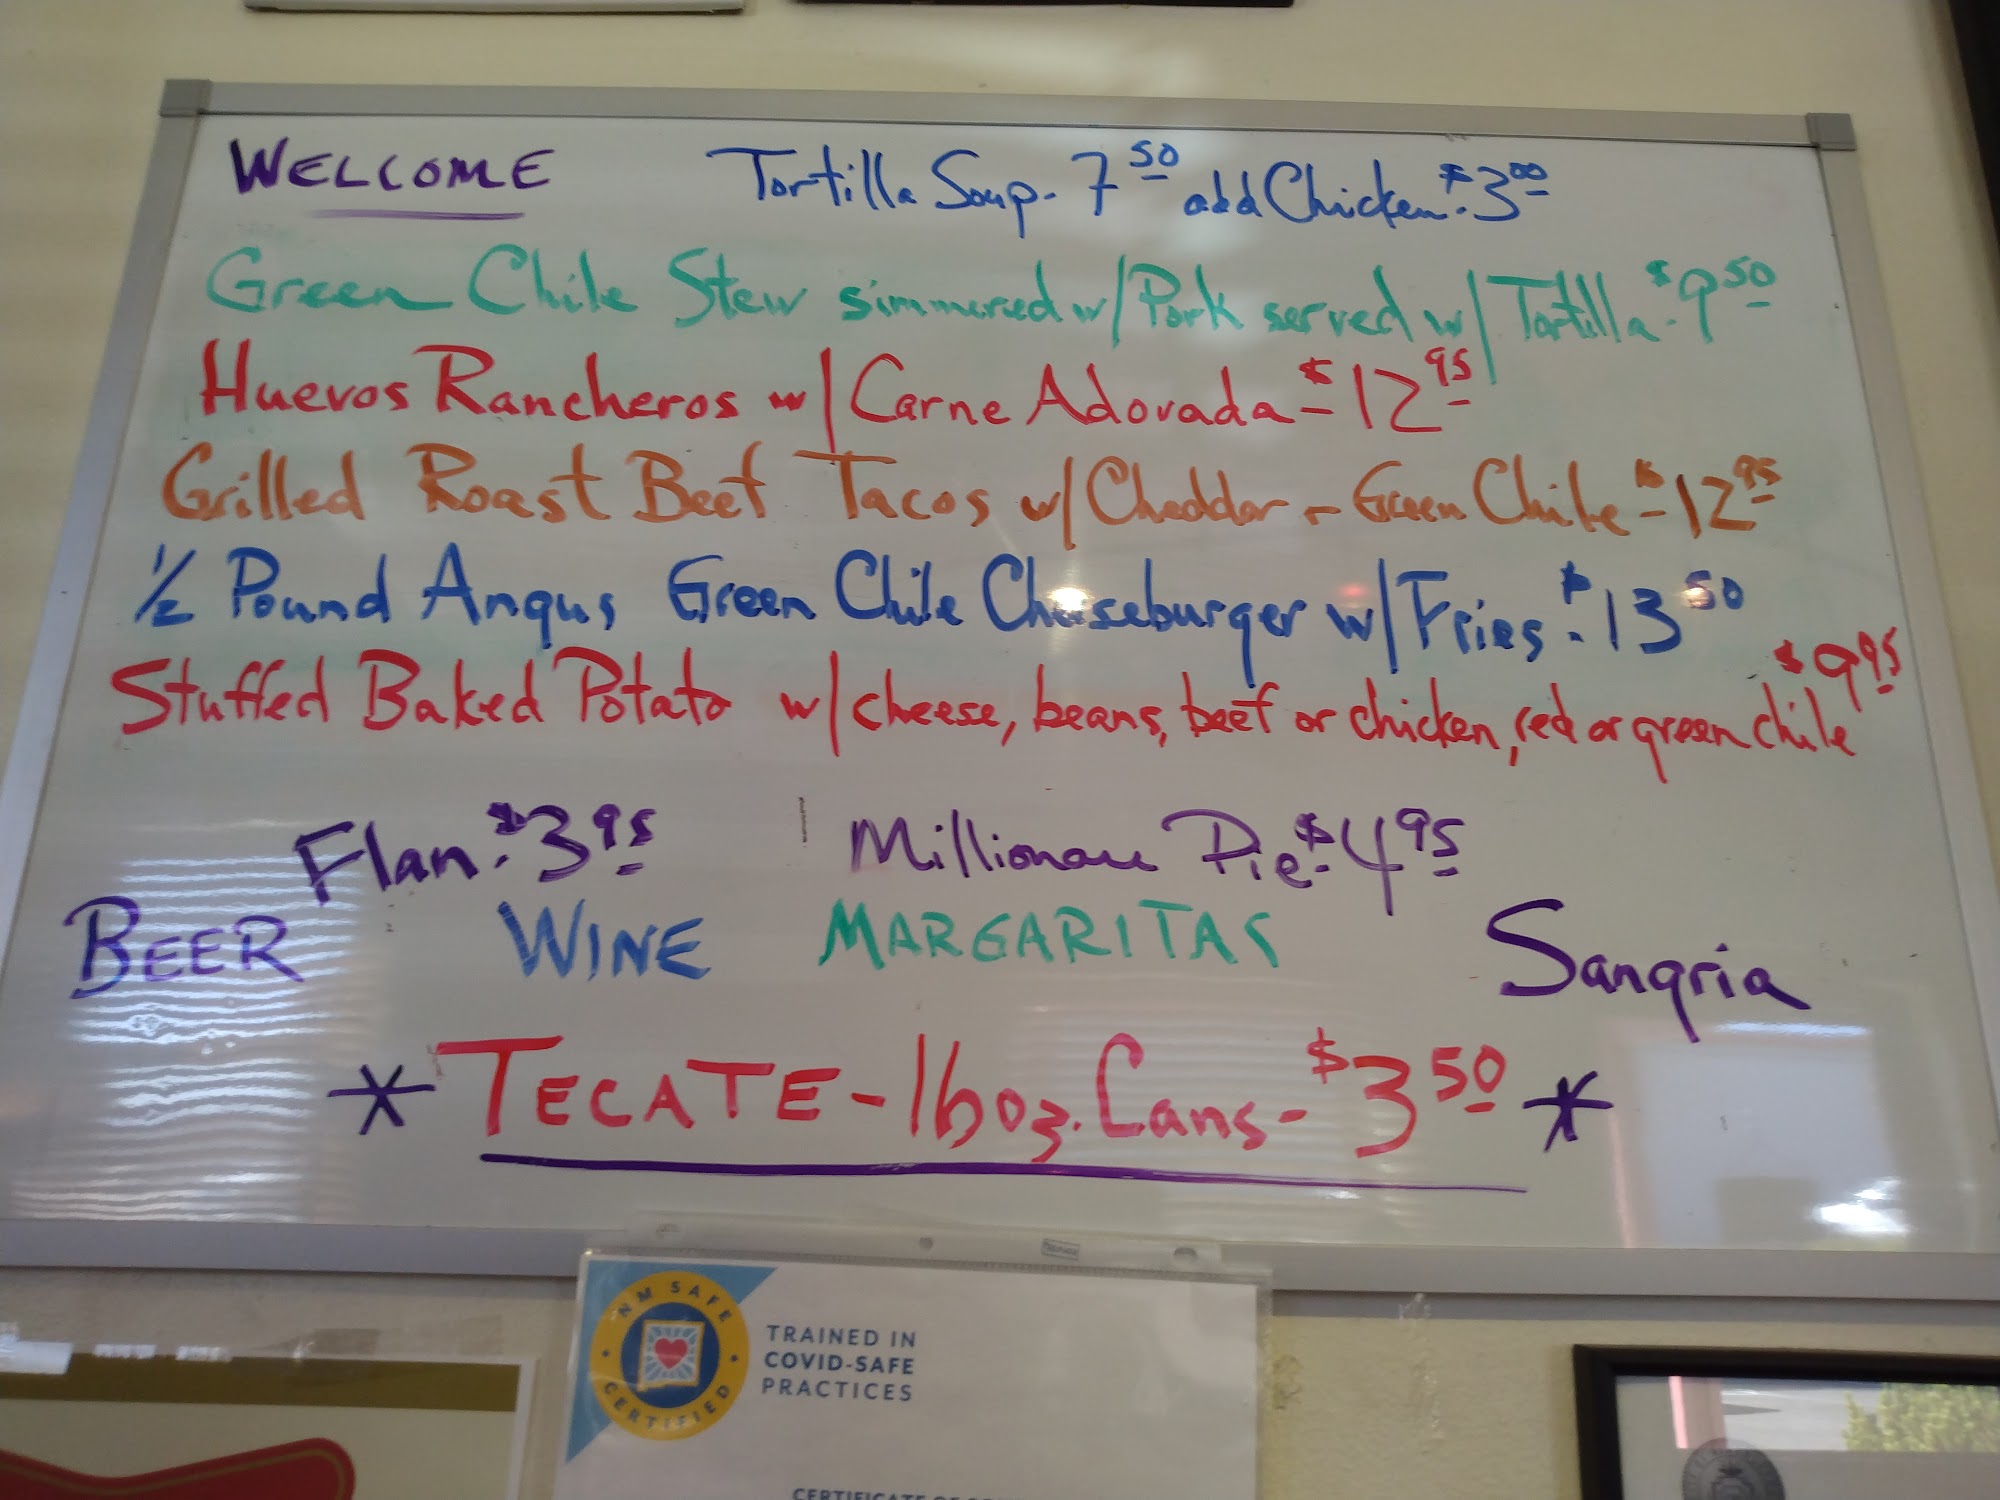 WELCOME Tortilla Soup - 7 50 add Chicken - $3 00
Green Chile Stew simmered w/Pork served w/Tortilla - $9 50
Huevos Rancheros w/Carne Adovada - $12 95
Grilled Roast Beef Tacos w/Cheddar + Green Chile - $12 95
1/2 Pound Angus Green Chile Cheeseburger w/Fries - $13 50
Stuffed Baked Potato w/cheese, beans, beef or chicken, red or green chile $9 95
Flan - $3 95 Millionaire Pie - $4 95
BEER WINE MARGARITAS Sangria
* TECATE - 16oz. Cans - $3 50 *
NM SAFE CERTIFIED
TRAINED IN
COVID-SAFE
PRACTICES
CERTIFICATE OF